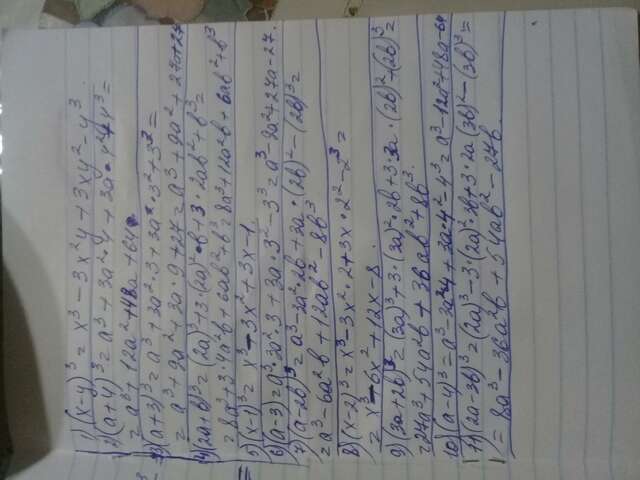 1) (x-y)³ = x³ - 3x²y + 3xy² - y³
2) (a+4)³ = a³ + 3a²•4 + 3a•4² + 4³ =
= a³ + 12a² + 48a + 64.
3) (a+3)³ = a³ + 3a²•3 + 3a•3² + 3³ =
= a³ + 9a² + 3a•9 + 27 = a³ + 9a² + 27a + 27
4) (2a+b)³ = (2a)³ + 3•(2a)²•b + 3•2ab² + b³ =
= 8a³ + 3•4a²b + 6ab² + b³ = 8a³ + 12a²b + 6ab² + b³
5) (x-1)³ = x³ - 3x² + 3x - 1.
6) (a-3)³ = a³ - 3a²•3 + 3a•3² - 3³ = a³ - 9a² + 27a - 27.
7) (a-2b)³ = a³ - 3a²•2b + 3a•(2b)² - (2b)³ =
= a³ - 6a²b + 12ab² - 8b³
8) (x-2)³ = x³ - 3x²•2 + 3x•2² - 2³ =
= x³ - 6x² + 12x - 8.
9) (3a+2b)³ = (3a)³ + 3•(3a)²•2b + 3•3a•(2b)² + (2b)³ =
= 27a³ + 54a²b + 36ab² + 8b³.
10) (a-4)³ = a³ - 3a²•4 + 3a•4² - 4³ = a³ - 12a² + 48a - 64
11) (2a-3b)³ = (2a)³ - 3•(2a)²•3b + 3•2a(3b)² - (3b)³ =
= 8a³ - 36a²b + 54ab² - 27b.